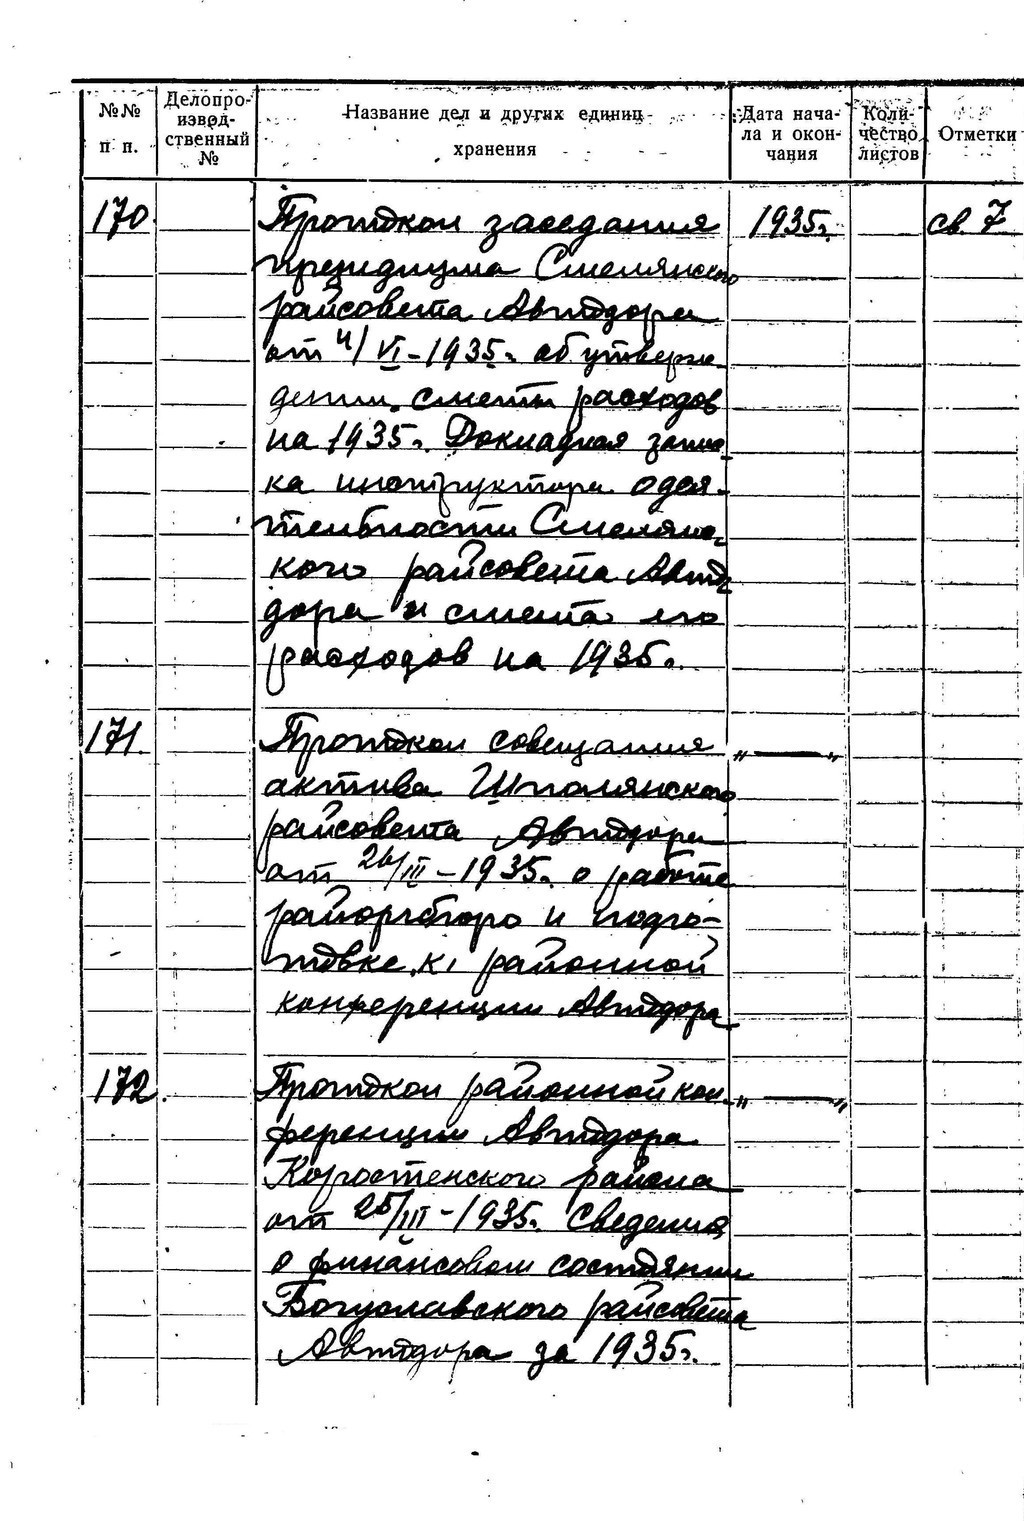 №№ п. п.
Делопро-
извод-
ственный
№
Название дел и других единиц
хранения
Дата нача-
ла и окон-
чания
Коли-
чество
листов
Отметки
170. Протокол заседания 1935г. св. 7
президиума Смелянского
райсовета Автодора
от 4/VI-1935г. об утверж-
дении сметы расходов
на 1935г. Докладная запис-
ка инструктора о дея-
тельности Смелянс-
кого райсовета Авто-
дора и смета его
расходов на 1935г.
171. Протокол совещания „ — "
актива Шполянского
райсовета Автодора
от 26/III-1935г. о работе
райоргбюро и подго-
товке к районной
конференции Автодора
172. Протокол районной кон- „ — "
ференции Автодора
Коростенского района
от 25/III-1935г. Сведения
о финансовом состоянии
Богуславского райсовета
Автодора за 1935г.